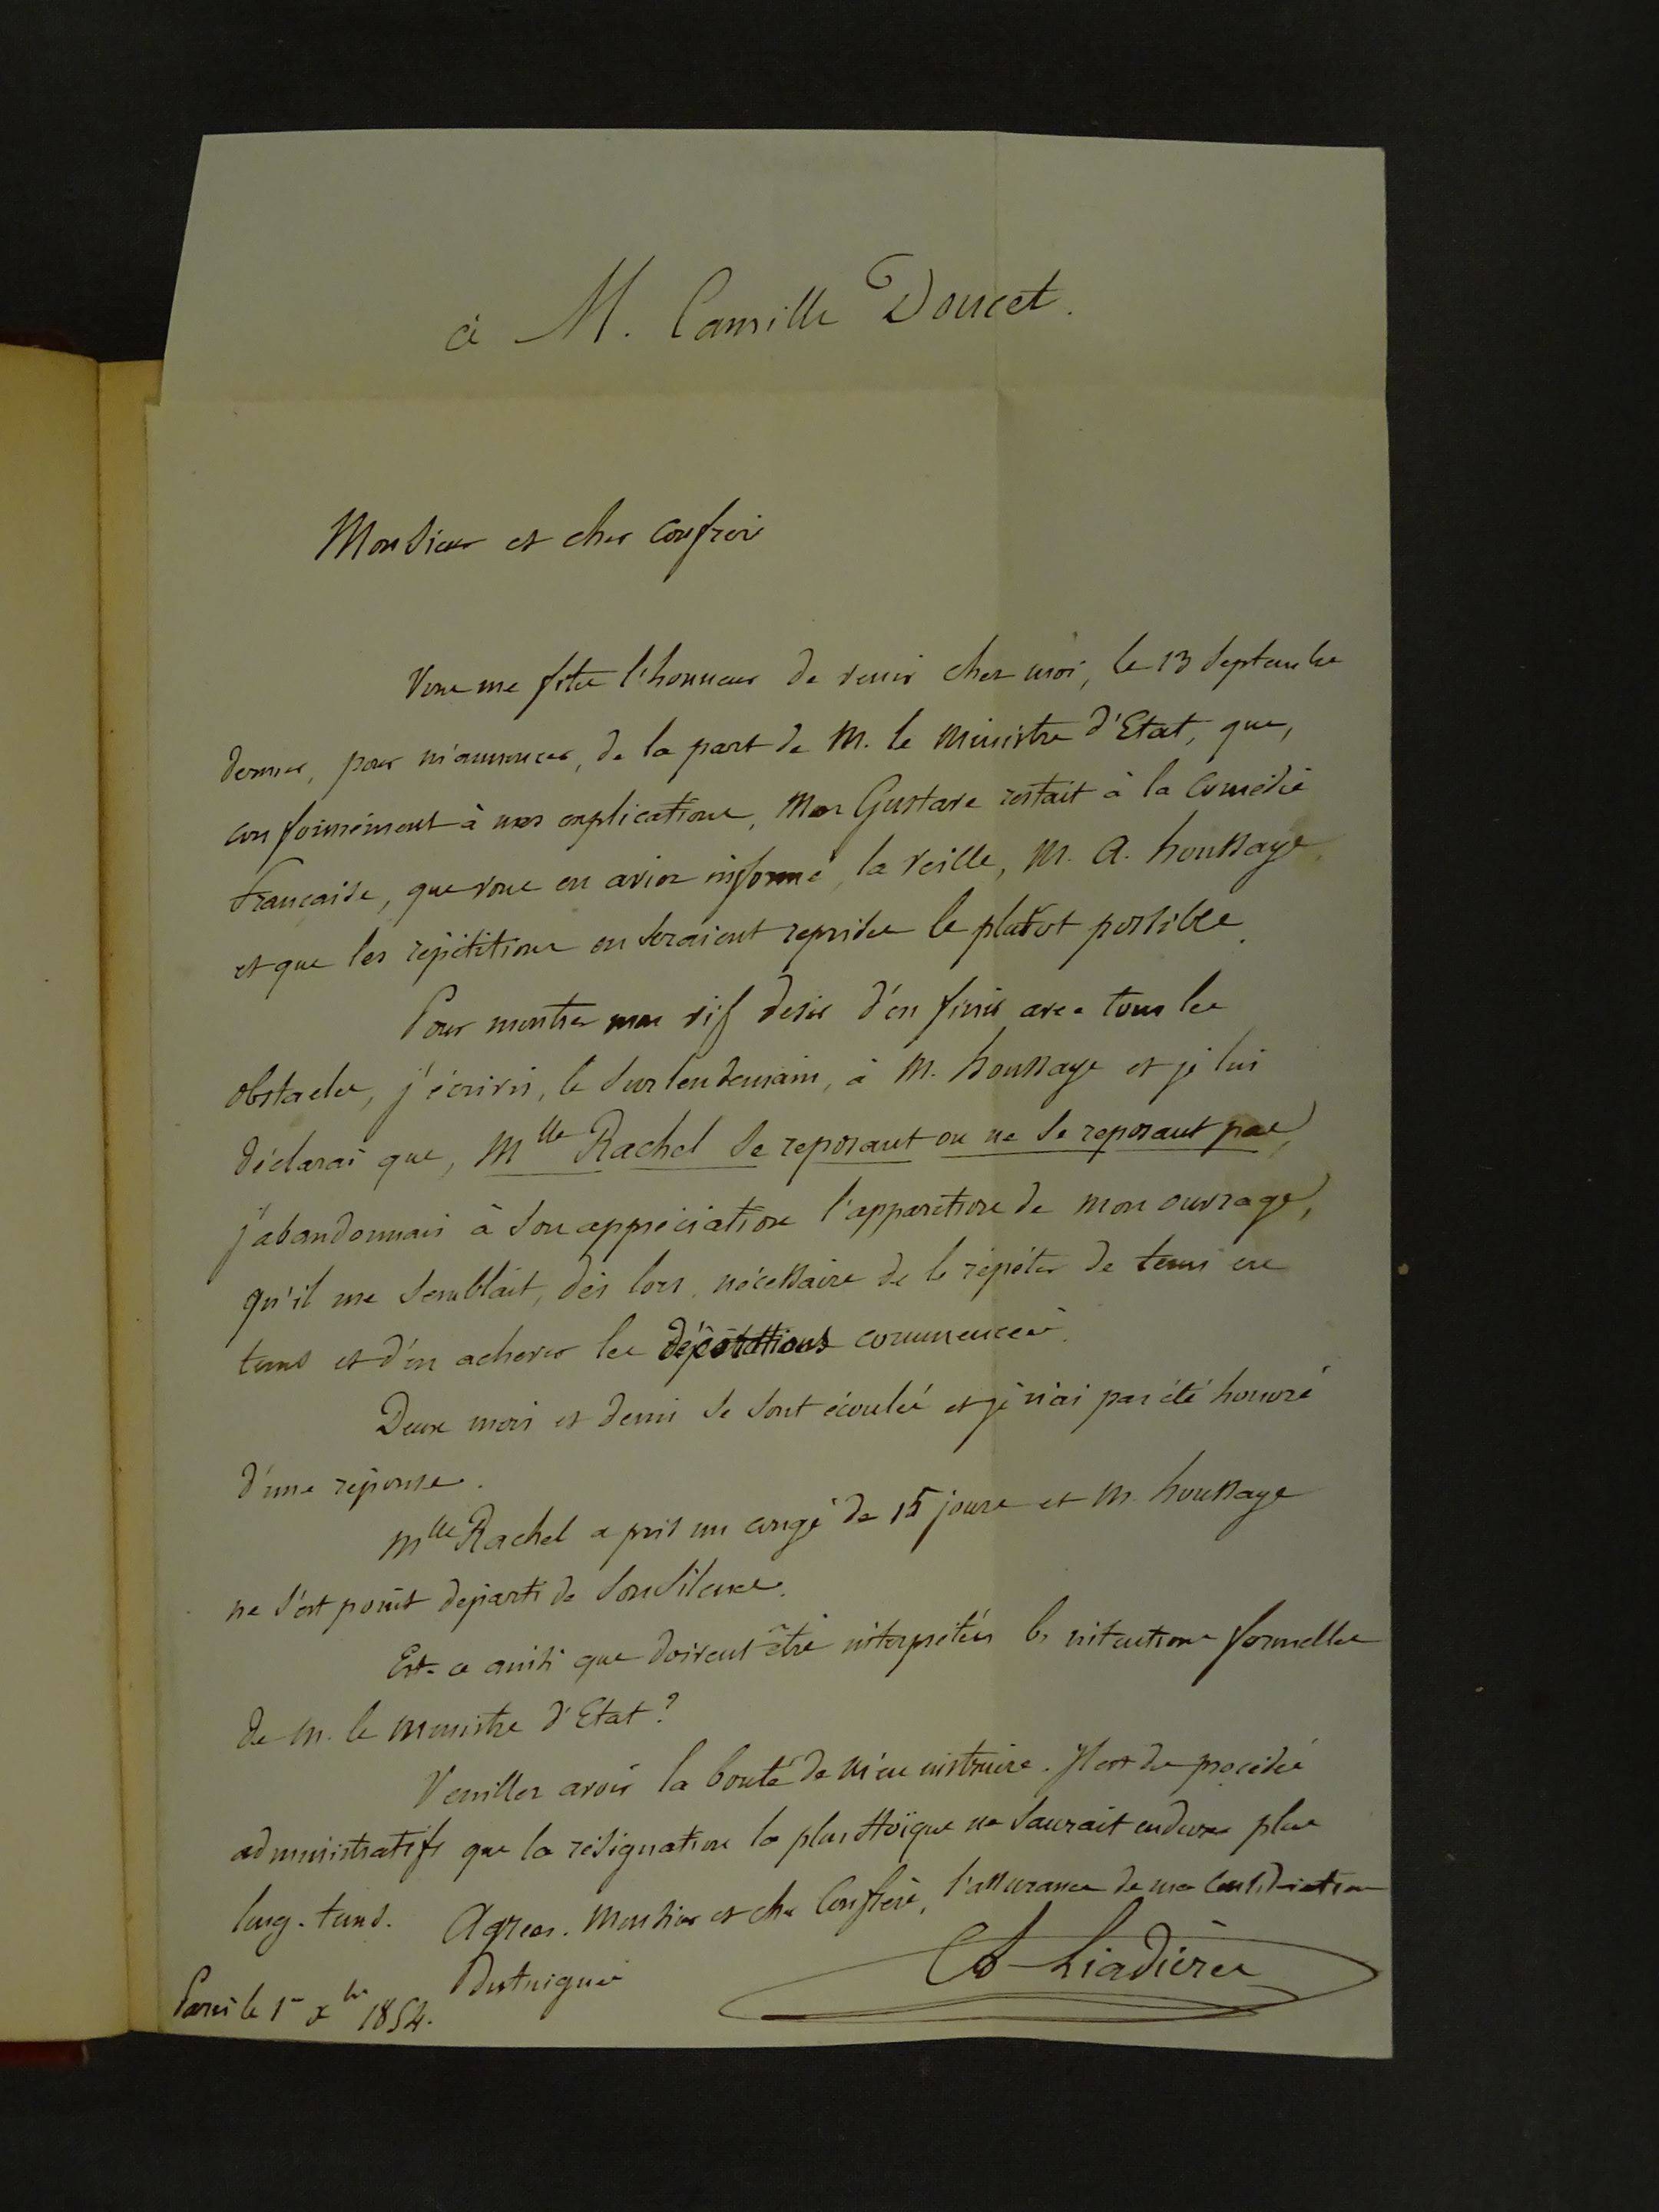 à M. Camille Doucet.
Monsieur et cher confrère
Vous me fites l'honneur de venir chez moi, le 13 Septembre
dernier, pour m'annoncer, de la part de M. le Ministre d'Etat, que,
conformément à mes explications, Mon Gustave restait à la Comédie
Française, que vous en aviez informé, la veille, M. A. houssaye,
et que les répétitions en seraient reprises le plutot possible.
Pour montrer mon vif desir d'en finir avec tous les
obstacles, j'écrivis, le surlendemain, à M. houssaye et je lui
déclarai que, Mlle Rachel se reposant ou ne se reposant pas,
j'abandonnais à son appréciation l'apparition de mon ouvrage,
qu'il me semblait, dès lors, nécessaire de le répéter de tems en
tems et d'en achever les décorations commencées.
Deux mois et demi se sont écoulés et je n'ai pas été honoré
d'une réponse.
Mlle Rachel a pris un congé de 15 jours et M. houssaye
ne s'est point départi de son silence.
Est-ce ainsi que doivent être interprétées les intentions formelles
de M. le Ministre d'Etat?
Veuillez avoir la bonté de m'en instruire. Il est des procédés
administratifs que la résignation la plus stoïque ne saurait endurer plus
long-tems. Agréez. Monsieur et cher Confrère, l'assurance de ma considération
distinguée
Ch Liadières
Paris le 1er xbre 1854.